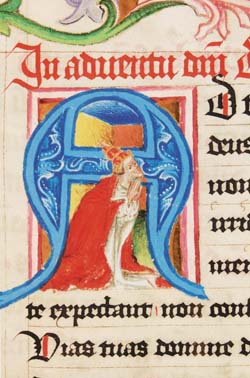 In aduentu dm̄
A D
deus
non
irri
mei
te expectant non conf
Vias tuas domine d